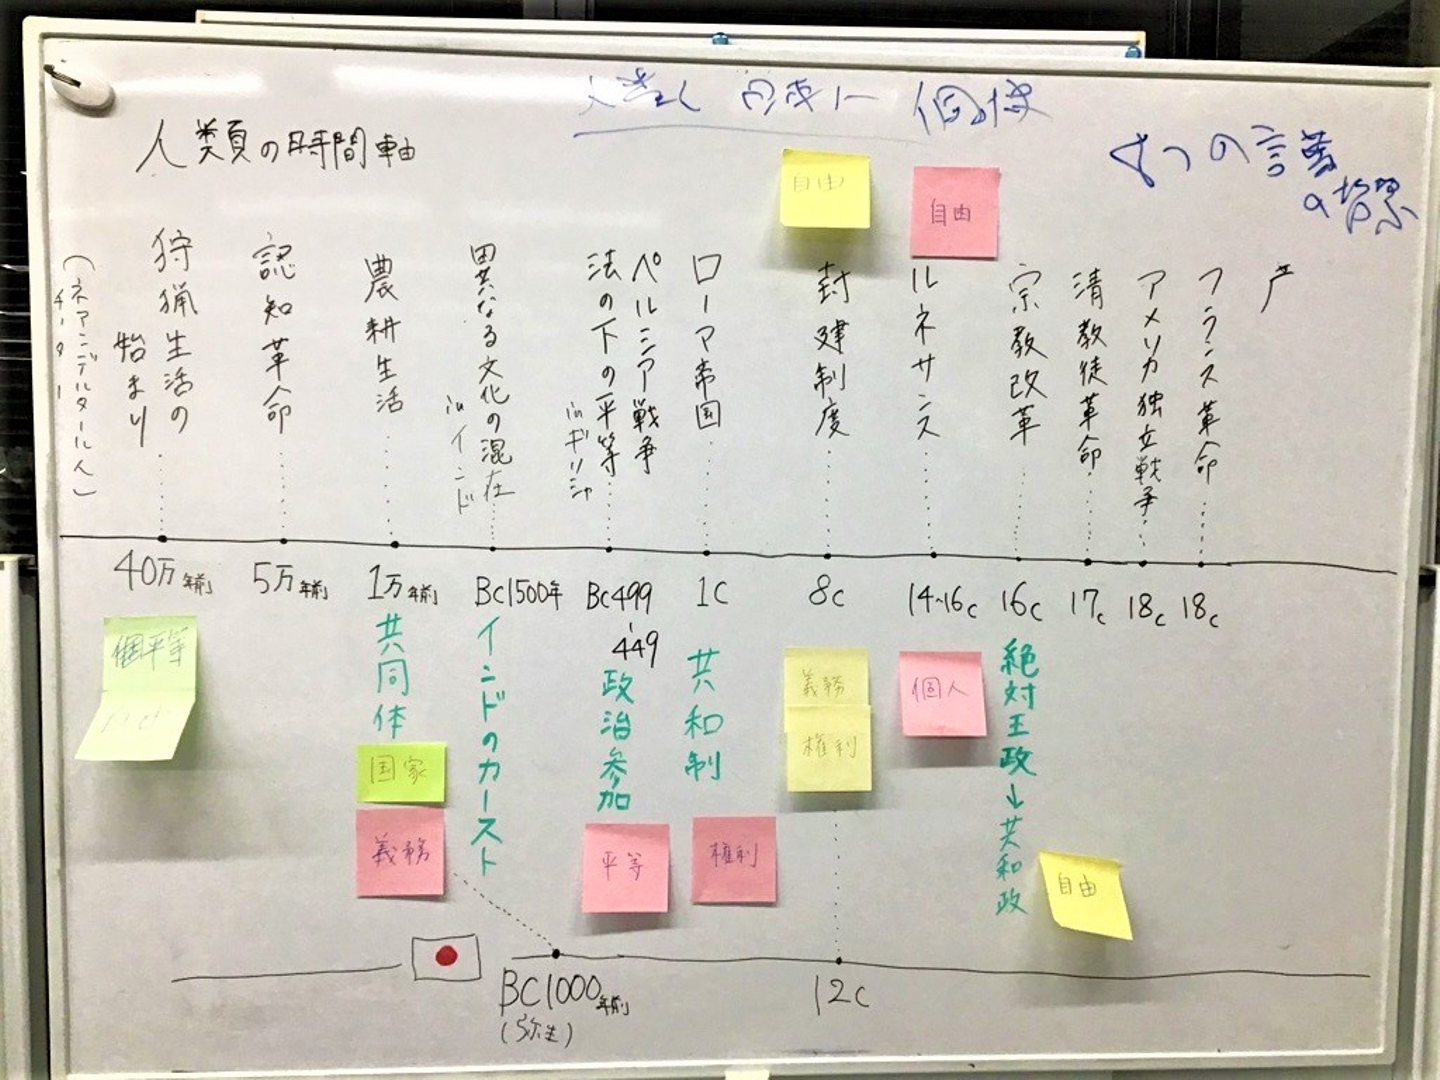 人類の時間軸
4つの言葉
の背景
自由
自由
(ネアンデルタール人)
狩猟生活の
始まり
認知革命
農耕生活
異なる文化の混在
inインド
ペルシア戦争
法の下の平等
inギリシャ
ローマ帝国
封建制度
ルネサンス
宗教改革
清教徒革命
アメリカ独立戦争
フランス革命
産
40万年前
5万年前
1万年前
BC1500年
BC499
449
1C
8C
14~16C
16C
17C
18C
18C
個平等
共同体
国家
義務
インドのカースト
政治参加
平等
共和制
権利
義務
権利
個人
絶対王政→共和政
自由
BC1000年前
(弥生)
12C